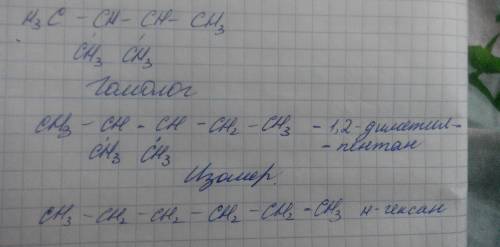 H₃C – CH – CH – CH₃
CH₃ CH₃
Гомолог
CH₃ – CH – CH – CH₂ – CH₃ – 1,2-диметил-
CH₃ CH₃ - пентан
Изомер.
CH₃ – CH₂ – CH₂ – CH₂ – CH₂ – CH₃ н-гексан